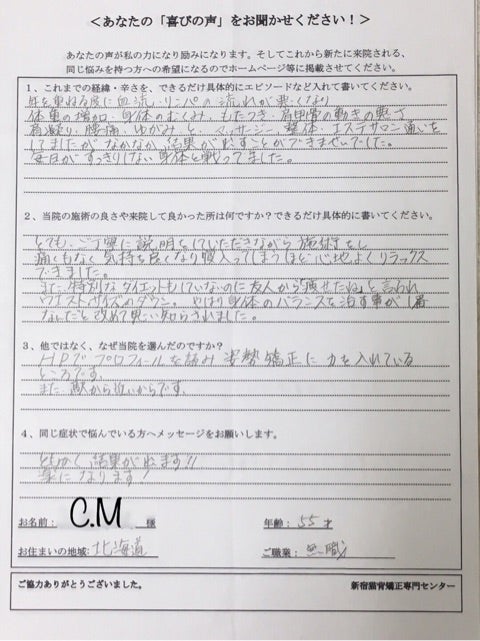 ＜あなたの「喜びの声」をお聞かせください！＞
あなたの声が私の力になり励みになります。そしてこれから新たに来院される、
同じ悩みを持つ方への希望になるのでホームページ等に掲載させてください。
1、これまでの経緯・辛さを、できるだけ具体的にエピソードなど入れて書いてください。
年を重ねる度に血流、リンパの流れが悪くなり
体重の増加、身体のむくみ、もたつき、肩甲骨の動きの悪さ
肩凝り、腰痛、ゆがみ、と、マッサージ、整体、エステサロン通いを
してましたがなかなか、結果が出すことができませんでした。
毎日がすっきりしない身体と戦ってました。
2、当院の施術の良さや来院して良かった所は何ですか？できるだけ具体的に書いてください。
とても、ご丁寧に説明をしていただきながら施術をし
痛くもなく気持ち良くなり寝入ってしまうほど心地よくリラックス
できました。
また、特別なダイエットもしていないのに友人から「痩せたね」と言われ
ウエストサイズのダウン。やはり身体のバランスを治す事が1番
なんだと改めて思い知らされました。
3、他ではなく、なぜ当院を選んだのですか？
HPでプロフィールを読み 姿勢矯正に力を入れている
ところです。
また、駅から近いからです。
4、同じ症状で悩んでいる方へメッセージをお願いします。
とにかく結果が出ます!!
楽になります!
お名前： C.M 様 年齢： 55才
お住まいの地域: 北海道 ご職業： 無職
ご協力ありがとうございました。 新宿猫背矯正専門センター